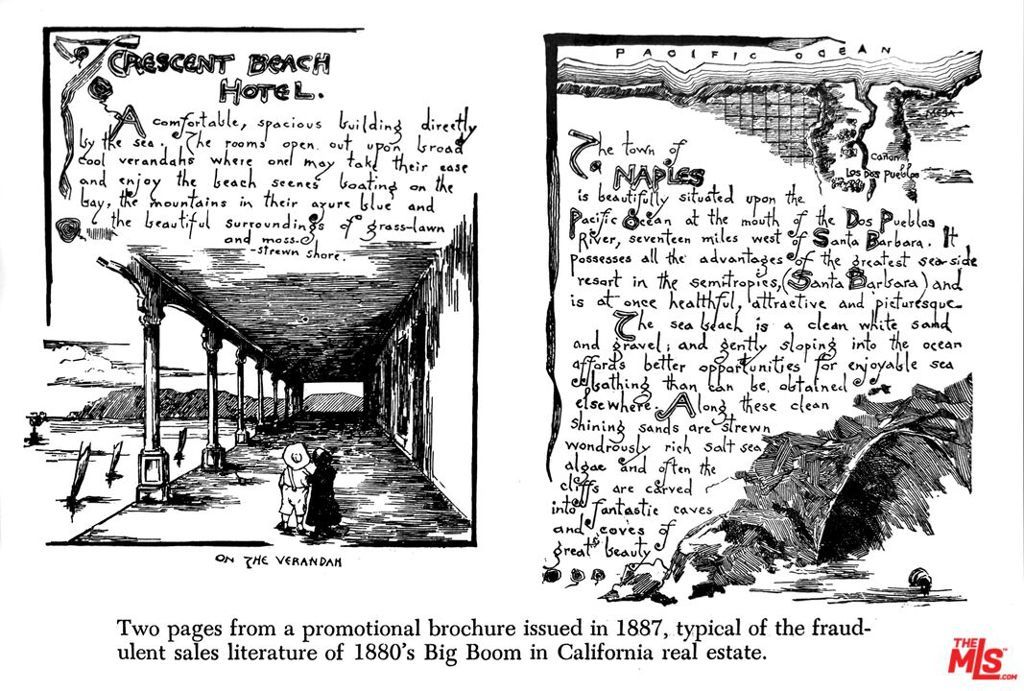 CRESCENT BEACH
HOTEL.
A comfortable, spacious building directly
by the sea. The rooms open out upon broad
cool verandahs where one may take their ease
and enjoy the beach scenes boating on the
bay, the mountains in their azure blue and
the beautiful surroundings of grass-lawn
and moss-
-strewn shore.
ON THE VERANDAH
PACIFIC OCEAN
MESA
Cañon
Los Dos Pueblos
The town of
NAPLES
is beautifully situated upon the
Pacific Ocean at the mouth of the Dos Pueblos
River, seventeen miles west of Santa Barbara. It
possesses all the advantages of the greatest sea-side
resort in the semi-tropics, (Santa Barbara) and
is at once healthful, attractive and picturesque.
The sea beach is a clean white sand
and gravel; and gently sloping into the ocean
affords better opportunities for enjoyable sea
bathing than can be obtained
elsewhere. Along these clean
shining sands are strewn
wondrously rich salt sea
algae and often the
cliffs are carved
into fantastic caves
and coves of
great beauty
Two pages from a promotional brochure issued in 1887, typical of the fraud-
ulent sales literature of 1880's Big Boom in California real estate.
THE
MLS™
.COM